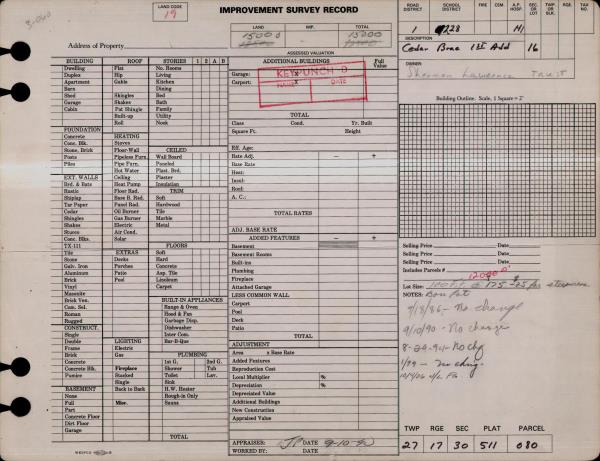 LAND CODE
19
IMPROVEMENT SURVEY RECORD
LAND IMP. TOTAL
15000 15000
ASSESSED VALUATION
Address of Property
ROAD DISTRICT SCHOOL DISTRICT FIRE CEM. A.P. HOSP. SEC. OR LOT TWP. OR BLK. RGE. TAX NO.
1 228 H1
DESCRIPTION
Cedar Brae 1st Add 16
OWNER
Sherman Lawrence Trust
Building Outline. Scale, 1 Square = 2'
BUILDING ROOF STORIES 1 2 A B
Dwelling Flat No. Rooms
Duplex Hip Living
Apartment Gable Kitchen
Barn Dining
Shed Shingles Bed
Garage Shakes Bath
Cabin Pat Shingle Family
Built-up Utility
Roll Nook
FOUNDATION
Concrete HEATING
Conc. Blk. Stoves CEILED
Stone, Brick Floor-Wall Wall Board
Posts Pipeless Furn. Paneled
Piles Pipe Furn. Plast. Brd.
Hot Water Plaster
EXT. WALLS Ceiling Insulation
Brd. & Bats Heat Pump
Rustic Floor Rad. TRIM
Shiplap Base B. Rad. Soft
Tar Paper Panel Rad. Hardwood
Cedar Oil Burner Tile
Shingles Gas Burner Marble
Shakes Electric Metal
Stucco Air Cond.
Conc. Blks. Solar
TX-111 FLOORS
Tile EXTRAS Soft
Stone Decks Hard
Galv. Iron Porches Concrete
Aluminum Patio Asp. Tile
Brick Pool Linoleum
Vinyl Carpet
Masonite
Brick Ven. BUILT-IN APPLIANCES
Com. Sel. Range & Oven
Roman Hood & Fan
Rugged Garbage Disp.
CONSTRUCT. Dishwasher
Single Inter Com.
Double LIGHTING Bar-B-Que
Frame Electric
Brick Gas PLUMBING
Concrete 1st G. 2nd G.
Concrete Blk. Fireplace Shower Tub
Pumice Stacked Toilet Lav.
Single Sink
BASEMENT Back to Back H.W. Heater
None Rough-in Only
Full Misc. Sauna
Part
Concrete Floor
Dirt Floor
Garage
TOTAL
ADDITIONAL BUILDINGS Full Value
Garage:
Carport:
KEYPUNCH D
NAME DATE
TOTAL
Class Cond. Yr. Built
Square Ft. Height
Eff. Age:
Rate Adj. − +
Base:
Heat:
Insul:
Roof:
A. C.:
TOTAL RATES
ADJ. BASE RATE
ADDED FEATURES +
Basement
Basement Rooms
Built-ins
Plumbing
Fireplace
Attached Garage
LESS COMMON WALL
Carport
Pool
Deck
Patio
TOTAL
ADJUSTMENT
Area x Base Rate
Added Features
Reproduction Cost
Local Multiplier %
Depreciation %
Depreciated Value
Additional Buildings
New Construction
Appraised Value
APPRAISER: DATE 9-10-90
WORKED BY: DATE
Selling Price Date
Selling Price Date
Selling Price Date
Includes Parcels #
12000
Lot Size:
NOTES:
9/18/86 - No change
9/10/90 - No change
8-24-94 - No chg
1/99 - No chng
TWP RGE SEC PLAT PARCEL
27 17 30 511 080